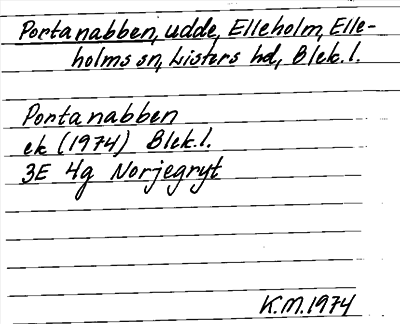 Portanabben, udde, Elleholm, Elle-
holms sn, Listers hd, Blek.l.
Portanabben
ek (1974) Blek.l.
3E 4g Norjegryt
K.M.1974